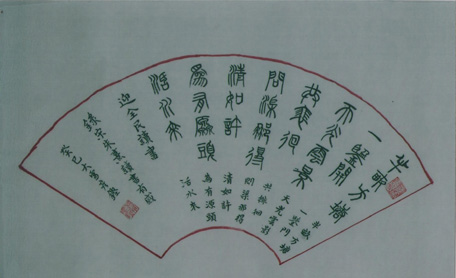 半畝方塘
一鑒開
天光雲影
共徘徊
問渠那得
清如許
為有源頭
活水來
迎全民讀書
錄宋朱熹讀書有感
癸巳大雪
半畝方塘
一鑒開
天光雲影
共徘徊
問渠那得
清如許
為有源頭
活水來